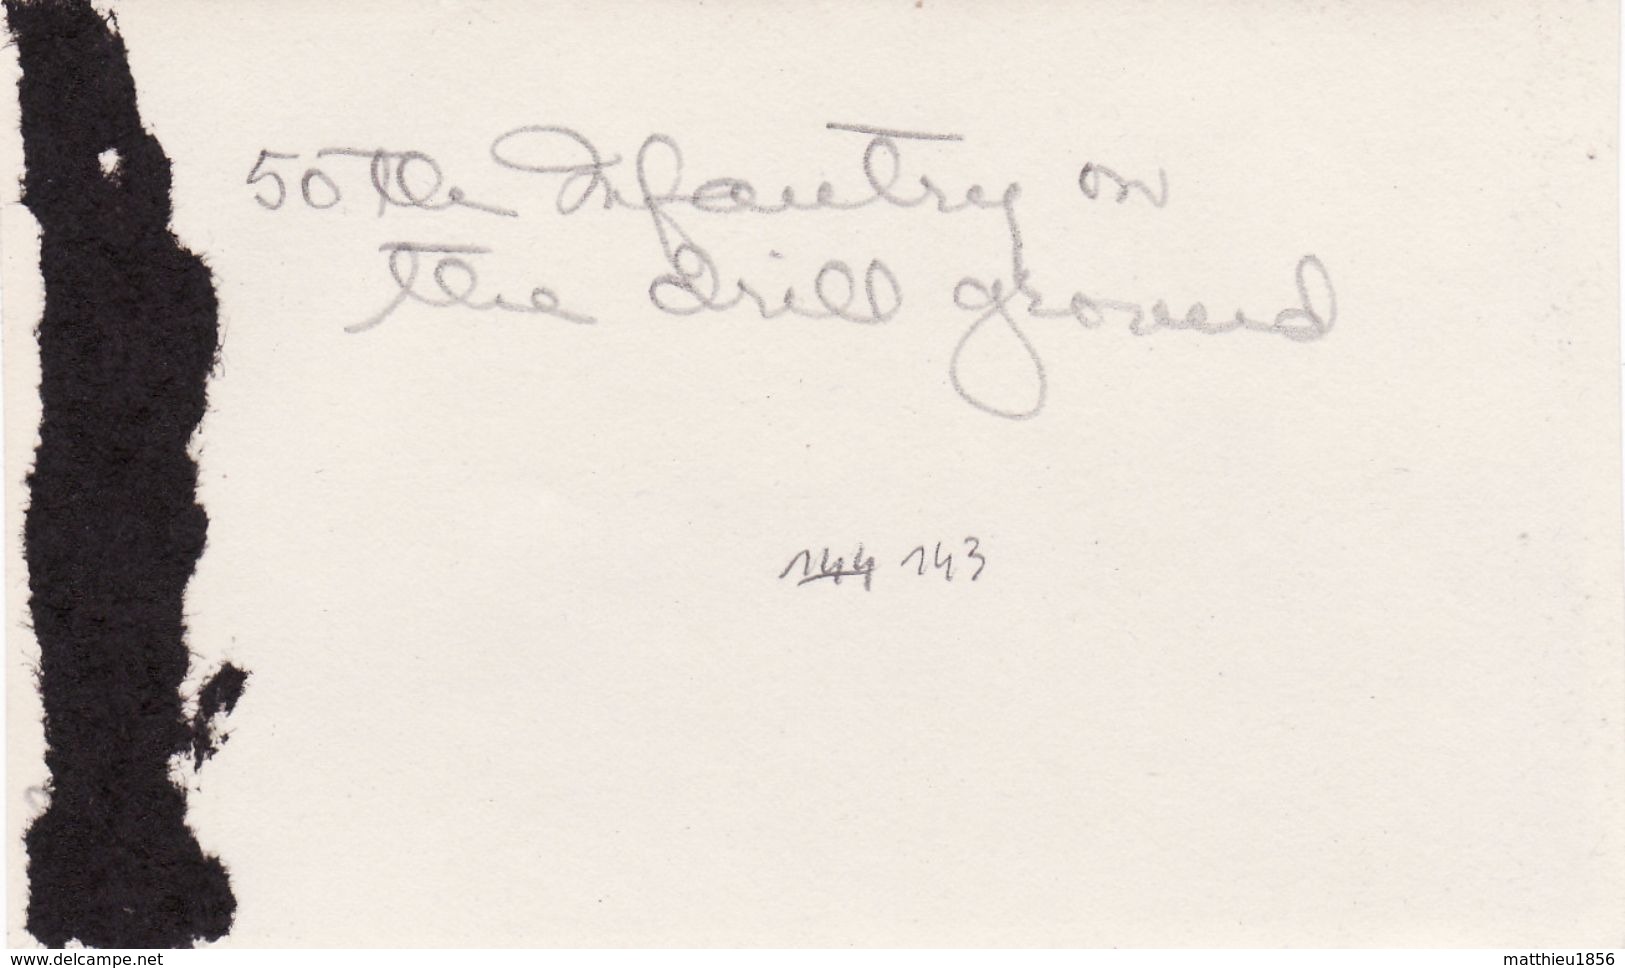 50th Infantry on
the drill ground
144 143
www.delcampe.net
matthieu1856